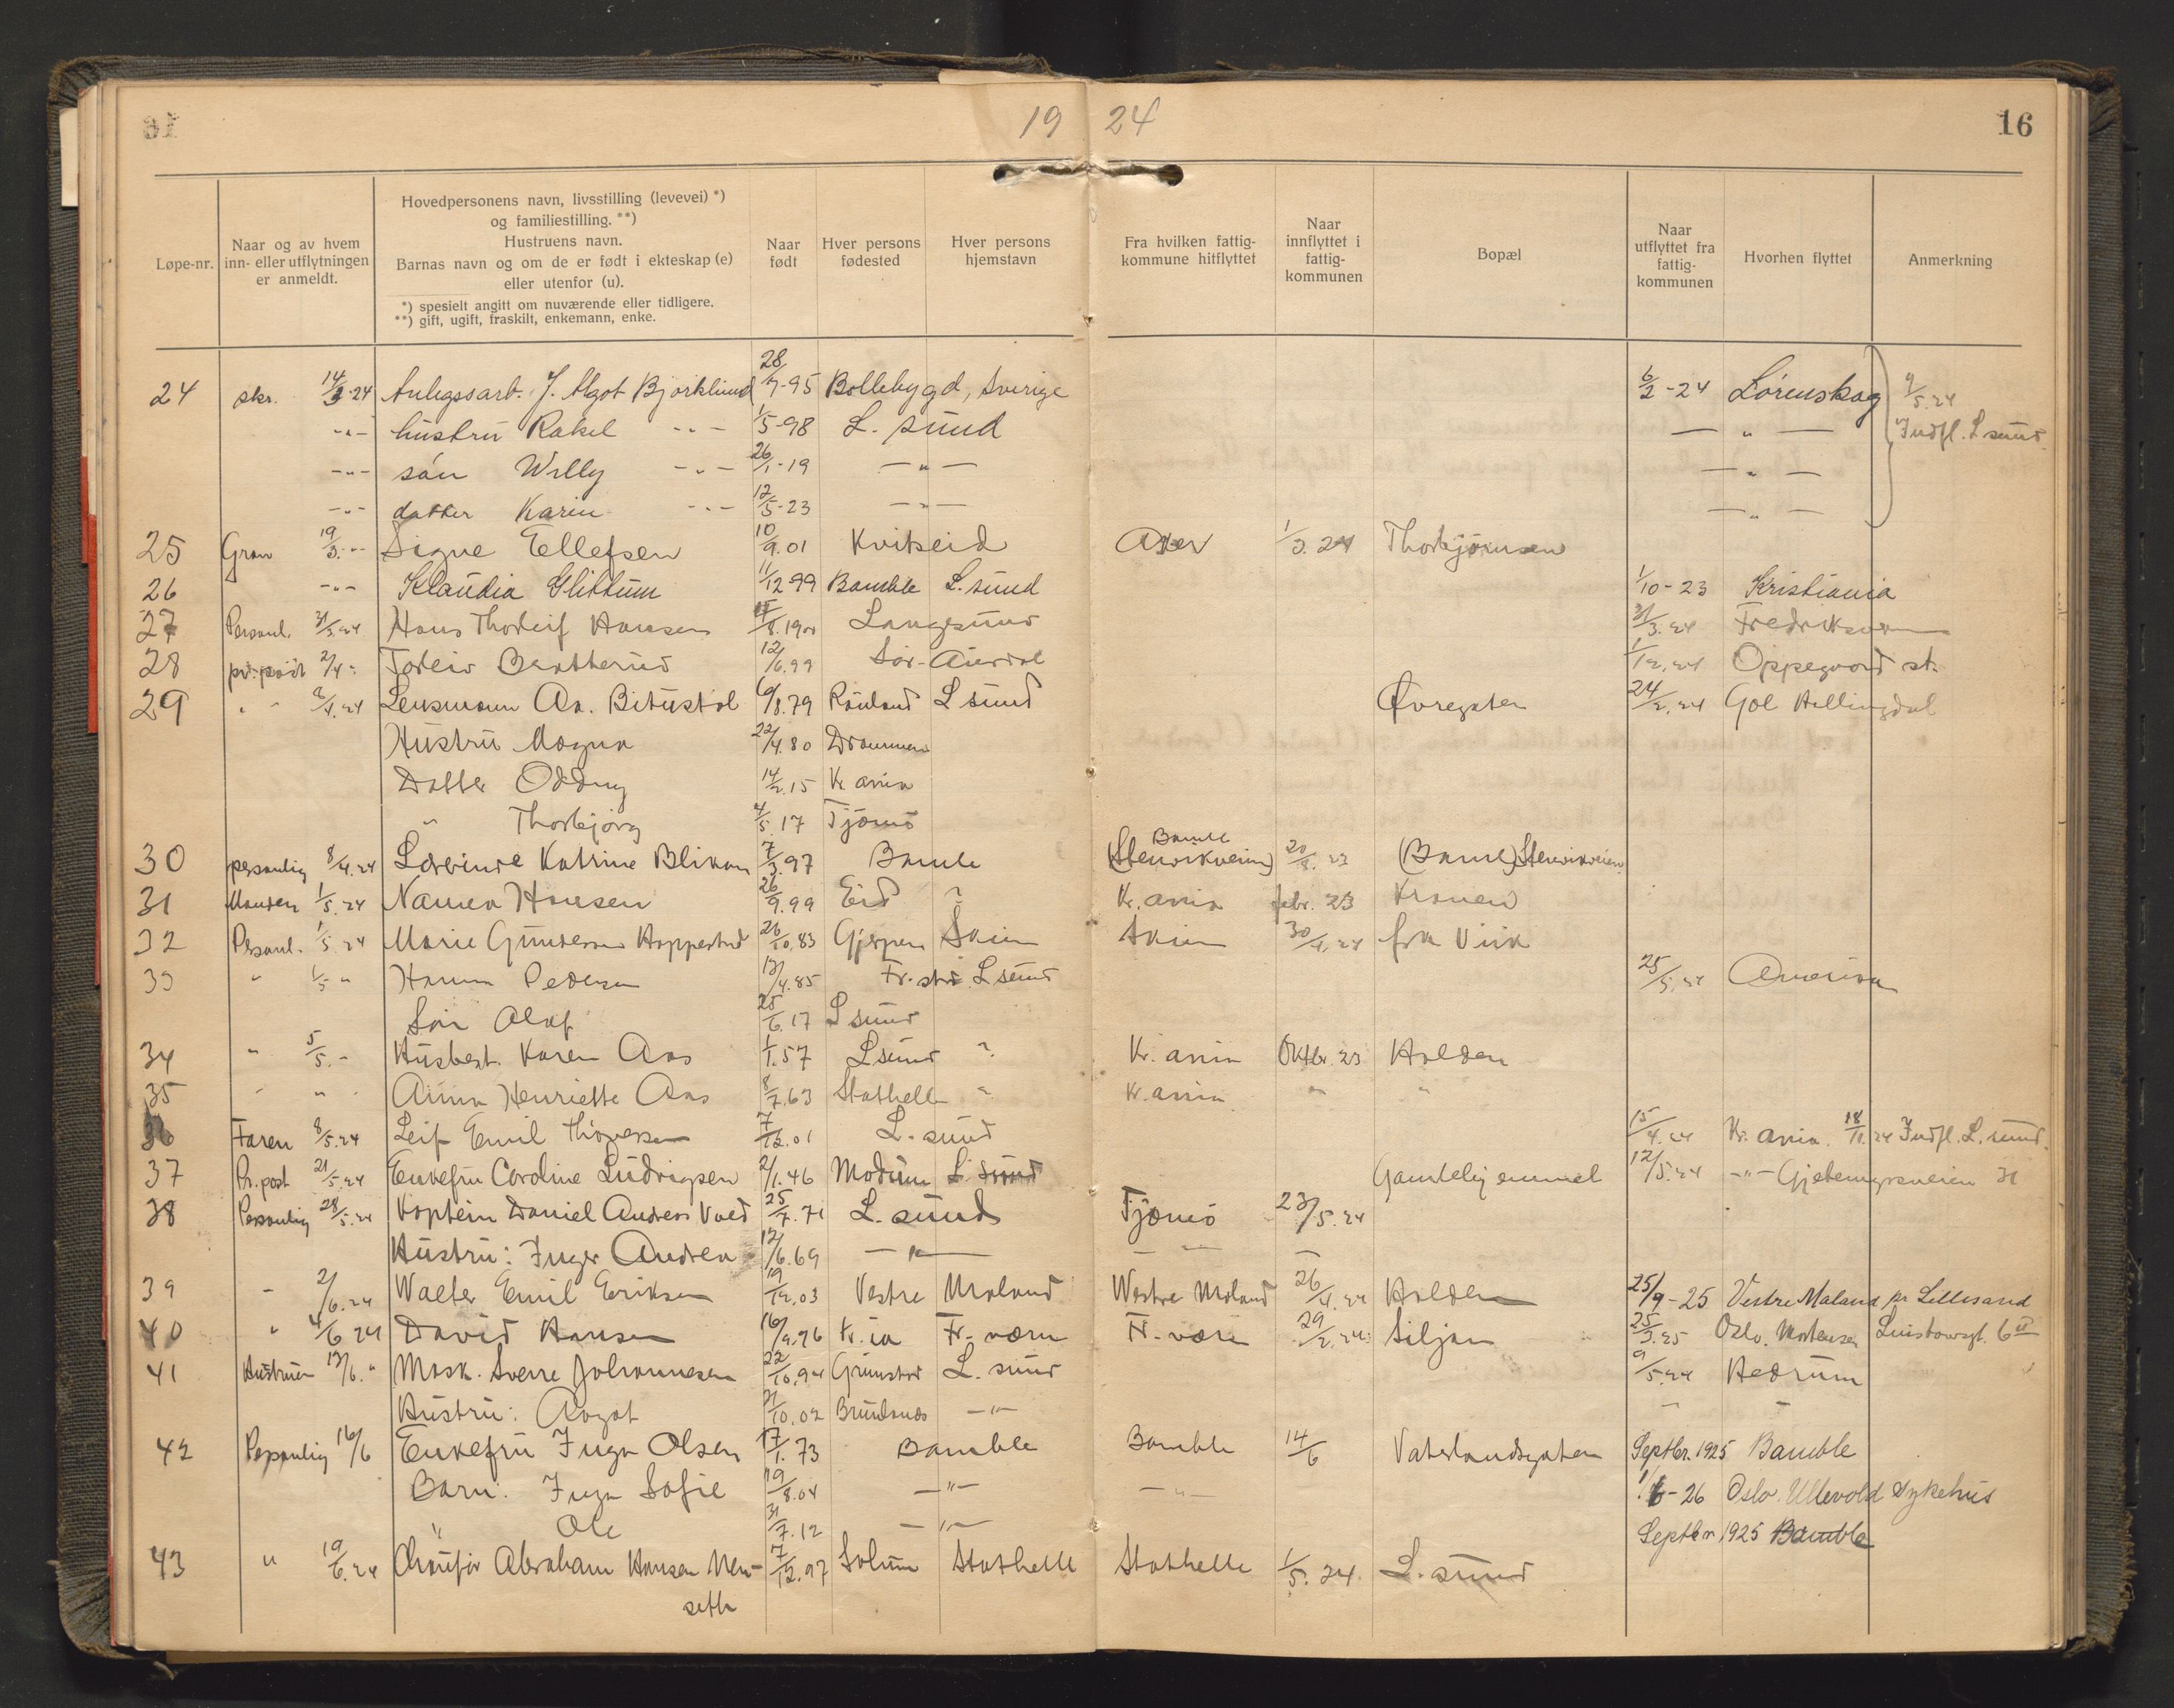 19 24
16
Løpe-nr.
Naar og av hvem
inn- eller utflytningen
er anmeldt.
Hovedpersonens navn, livsstilling (levevei) *)
og familiestilling. **)
Hustruens navn.
Barnas navn og om de er født i ekteskap (e)
eller utenfor (u).
*) spesielt angitt om nuværende eller tidligere.
**) gift, ugift, fraskilt, enkemann, enke.
Naar
født
Hver persons
fødested
Hver persons
hjemstavn
Fra hvilken fattig-
kommune hitflyttet
Naar
innflyttet i
fattig-
kommunen
Bopæl
Naar
utflyttet fra
fattig-
kommunen
Hvorhen flyttet
Anmerkning
24 skr. 14/3-24 Anlegsarb. J. Algot Bjørklund 28/7-95 Bollebygd, Sverige 6/2-24 Lørenskog 9/5.24
-"- hustru Rakel -"- 1/5-98 L. sund — " — Indfl. L sund
-"- søn Willy -"- 26/1-19 — " — — " —
-"- datter Karin -"- 12/5-23 — " — — " —
25 Gran 19/3.-"- Signe Ellefsen 10/9.01 Kvitseid Aker 1/3.24 Thorbjørnsen
26 -"- Klaudia Glittum 11/12 99 Bamble L. sund 1/10-23 Kristiania
27 Personl. 31/3.24 Hans Thorleif Hansen /8.1900 Langesund 31/3.24 Fredriksvern
28 pr. post 2/4 Torleiv 12/6.99 Sør-Aurdal 1/12.24 Oppegaard st.
29 " " 3/4.24 Lensmann Aa. Bitustøl 6/8.79 Rauland L sund Øvregaten 24/2.24 Gol Hallingdal
Hustru Magna 22/4.80 Drammen
Datter Oddny 14/2.15 Kr ania
" Thorbjørg 4/5.17 Tjømø
30 personlig 8/4.24 Katrine Blikom 7/3.97 Bamle Bamle (Stenvikveien) 20/8.23 (Bamle) Stenvikveien
31 1/5.24 Nanna Hansen 26/9.99 Eid ? Kr. ania febr. 23 Kranen
32 Personl. 1/5 24 Marie Gundersen Hoppestad 26/10.83 Gjerpen Skien Skien 30/4.24 frk Vik
33 " 1/5 " Hanna Pedersen 13/4.85 Fr. stad L sund 25/5.24 Amerika
Søn Olaf 25/6.17 L sund
34 " 5/5.- Husbest. Karen Aas 1/1.57 L sund ? Kr. ania Oktbr. 23 Halden
35 " " Anna Henriette Aas 8/7.63 Stathelle " Kr. ania " "
36 Faren 8/5.24 Leif Emil Thoversen 7/12.01 L. sund 15/4.24 Kr. ania. 18/11.24 Indfl. L. sund.
37 Pr. post 21/5.24 Enkefru Caroline Ludvigsen 2/1.46 Modum L. sund Gamlehjemmet 12/5.24 -"- Gjetemyrsveien 31
38 Personlig 28/5.24 Kaptein Daniel Anders Vold 25/7.71 L. sund Tjømø 23/5.24
Hustru: Inger Andrea 12/6.69 — " — — " — —
39 " 2/6.24 Walter Emil Eriksen 19/12.03 Vestre Moland Westre Moland 26/4.24 Halden 25/9-25 Vestre Moland pr Lillesand
40 " 4/6 24 David Hansen 16/9.76 Kr. ia Fr. værn Fr. værn 29/2.24 Siljan 25/3.25 Oslo. Mortensen Luistowsgt. 6 II
41 Hustruen 13/6." Mask. Sverre Johannesen 22/10.94 Grimstad L. sund 9/5.24 Hedrum
Hustru: Aagot 21/10.02 Brunlanæs -"- " "
42 Personlig 16/6 Enkefru Inga Olsen 17/1.73 Bamble Bamble 14/6 Vaterlandsgaten Septbr. 1925 Bamble
Barn: Inga Sofie 19/8.04 -"- -"- 1/6-26 Oslo Ullevold Sykehus
" Ole 31/7.12 -"- Septbr 1925 Bamble
43 " 19/6.24 Chauffør Abraham Hansen Men- 7/12.97 Solum Stathelle Stathelle 1/5.24. L. sund
seth